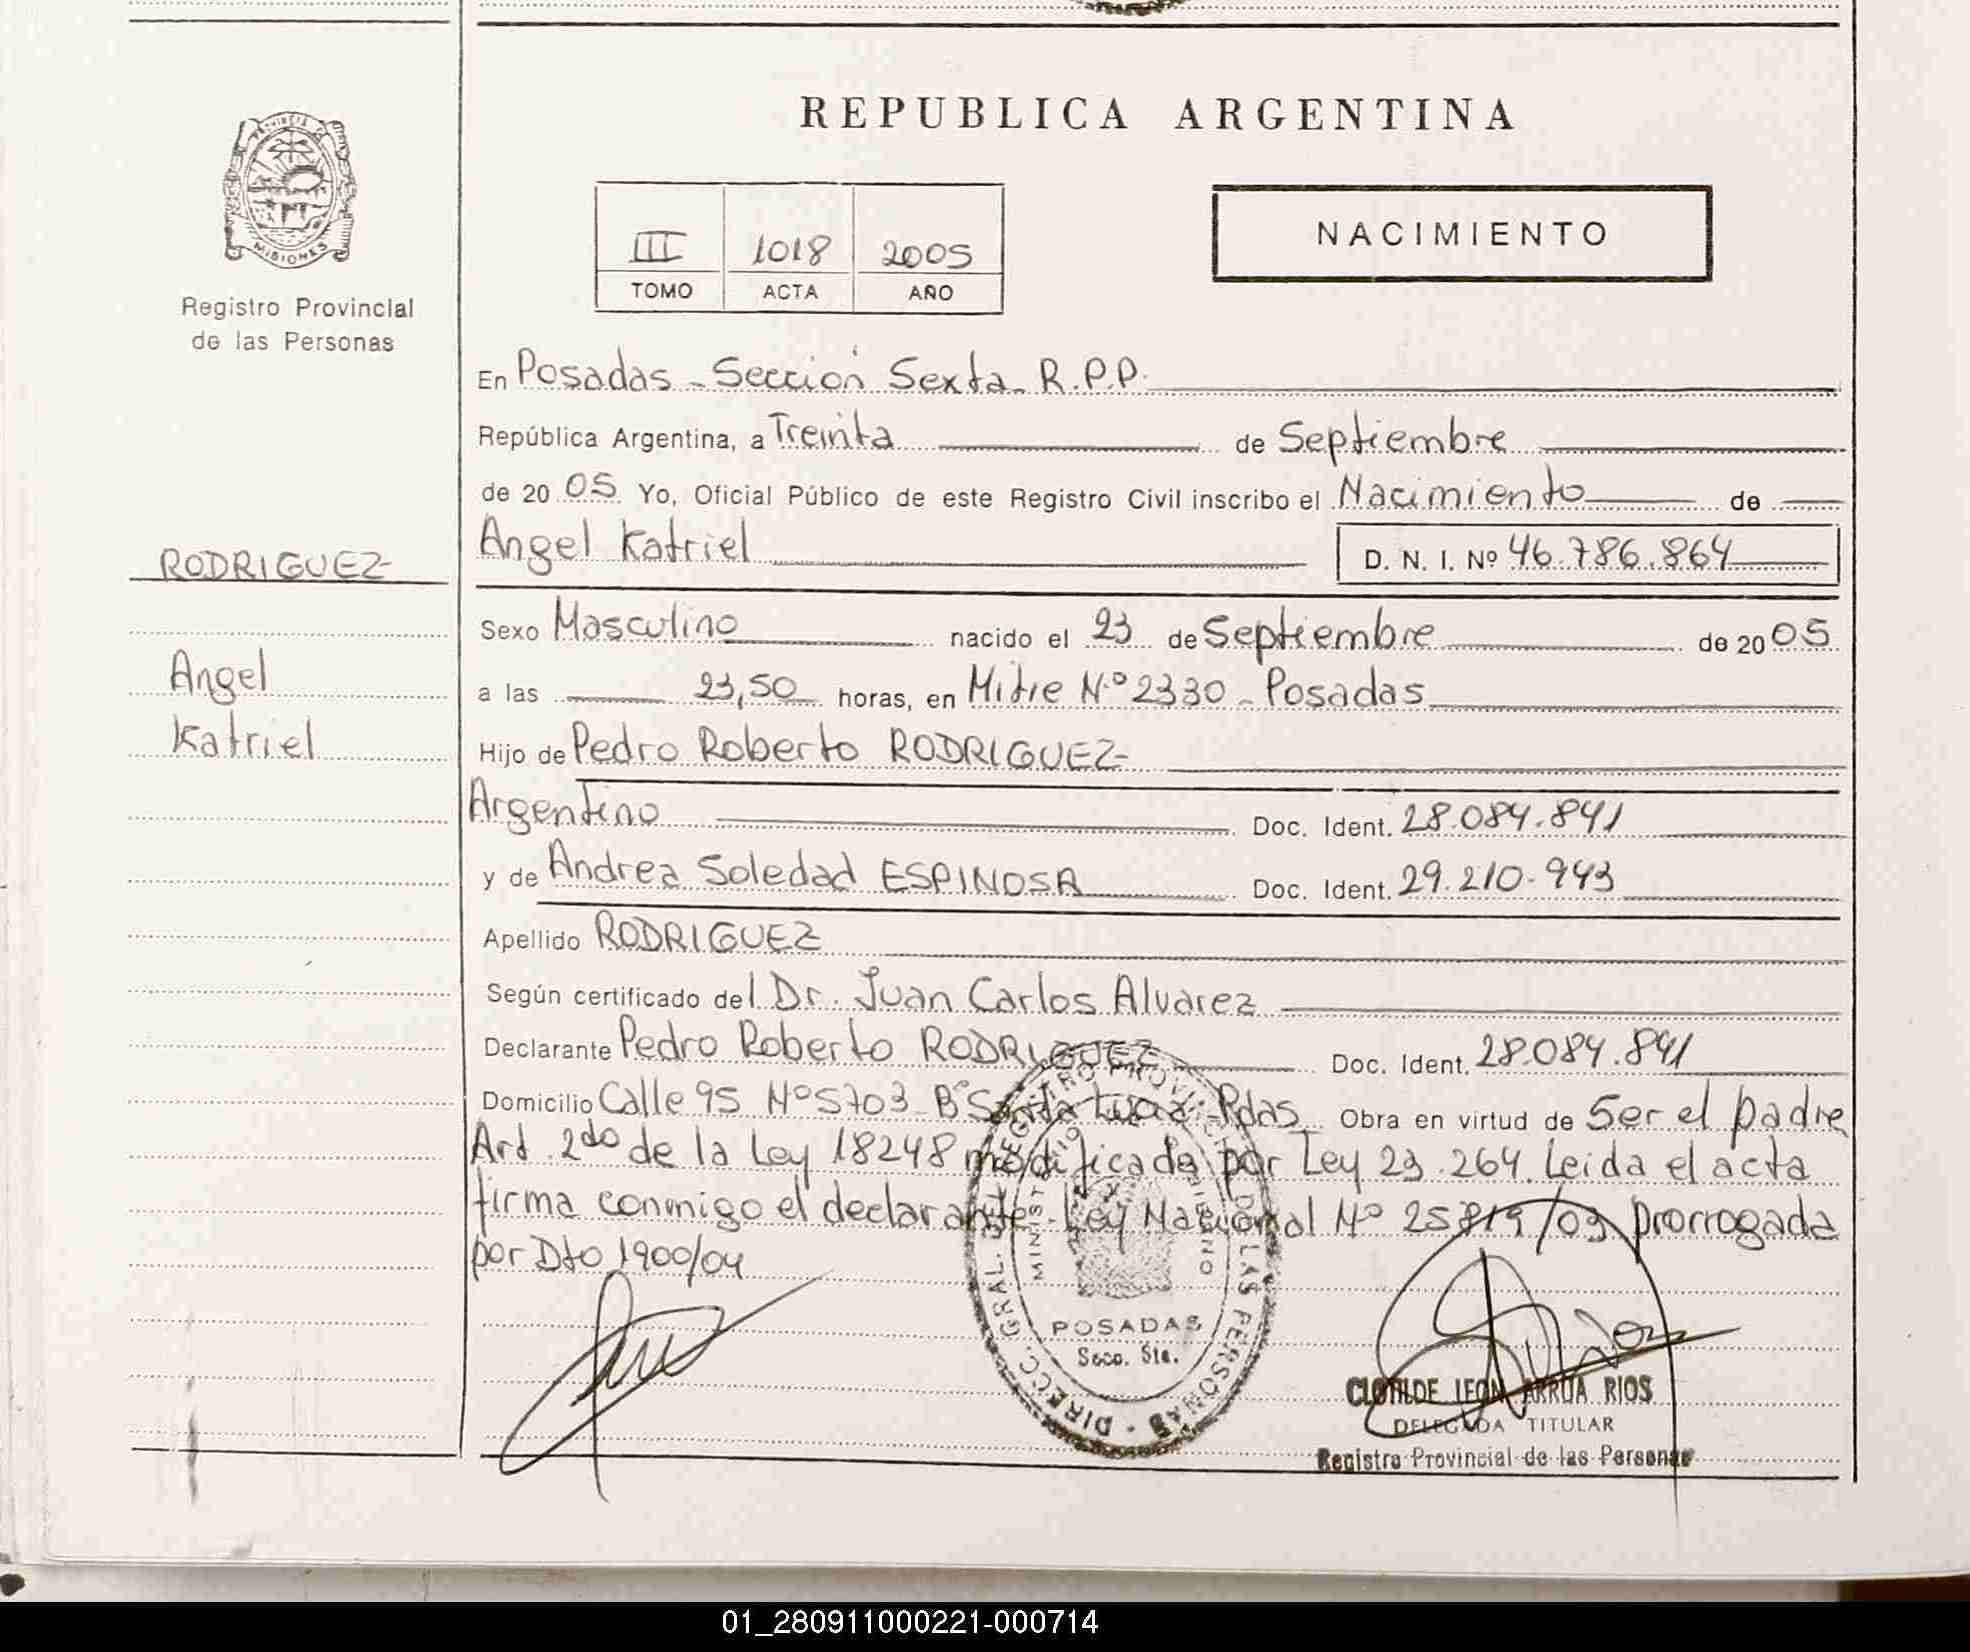 REPUBLICA ARGENTINA
PROVINCIA DE
MISIONES
Registro Provincial
de las Personas
III 1018 2005
TOMO ACTA AÑO
NACIMIENTO
En Posadas - Sección Sexta - R.P.P.
República Argentina, a Treinta de Septiembre
de 2005 Yo, Oficial Público de este Registro Civil inscribo el Nacimiento de
RODRIGUEZ
Angel Katriel D. N. I. Nº 46.786.864
Sexo Masculino nacido el 23 de Septiembre de 2005
Angel
a las 23,50 horas, en Mitre N.º 2330 - Posadas
Katriel
Hijo de Pedro Roberto RODRIGUEZ
Argentino Doc. Ident. 28.084.841
y de Andrea Soledad ESPINOSA Doc. Ident. 29.210.943
Apellido RODRIGUEZ
Según certificado del Dr. Juan Carlos Alvarez
Declarante Pedro Roberto RODRIGUEZ Doc. Ident. 28.084.841
Domicilio Calle 95 Nº 5703 - Bº Santa Lucia - Pdas Obra en virtud de Ser el padre
Art. 2do de la Ley 18248 modificada por Ley 23.264. Leida el acta
firma conmigo el declarante. Ley Nacional Nº 25819/03 prorrogada
por Dto 1900/04
DIRECC. GRAL. DEL REGISTRO PROVINCIAL DE LAS PERSONAS
MINISTERIO DE GOBIERNO
POSADAS
Secc. 6ta.
CLOTILDE LEON ARRUA RIOS
DELEGADA TITULAR
Registro Provincial de las Personas
01_280911000221-000714